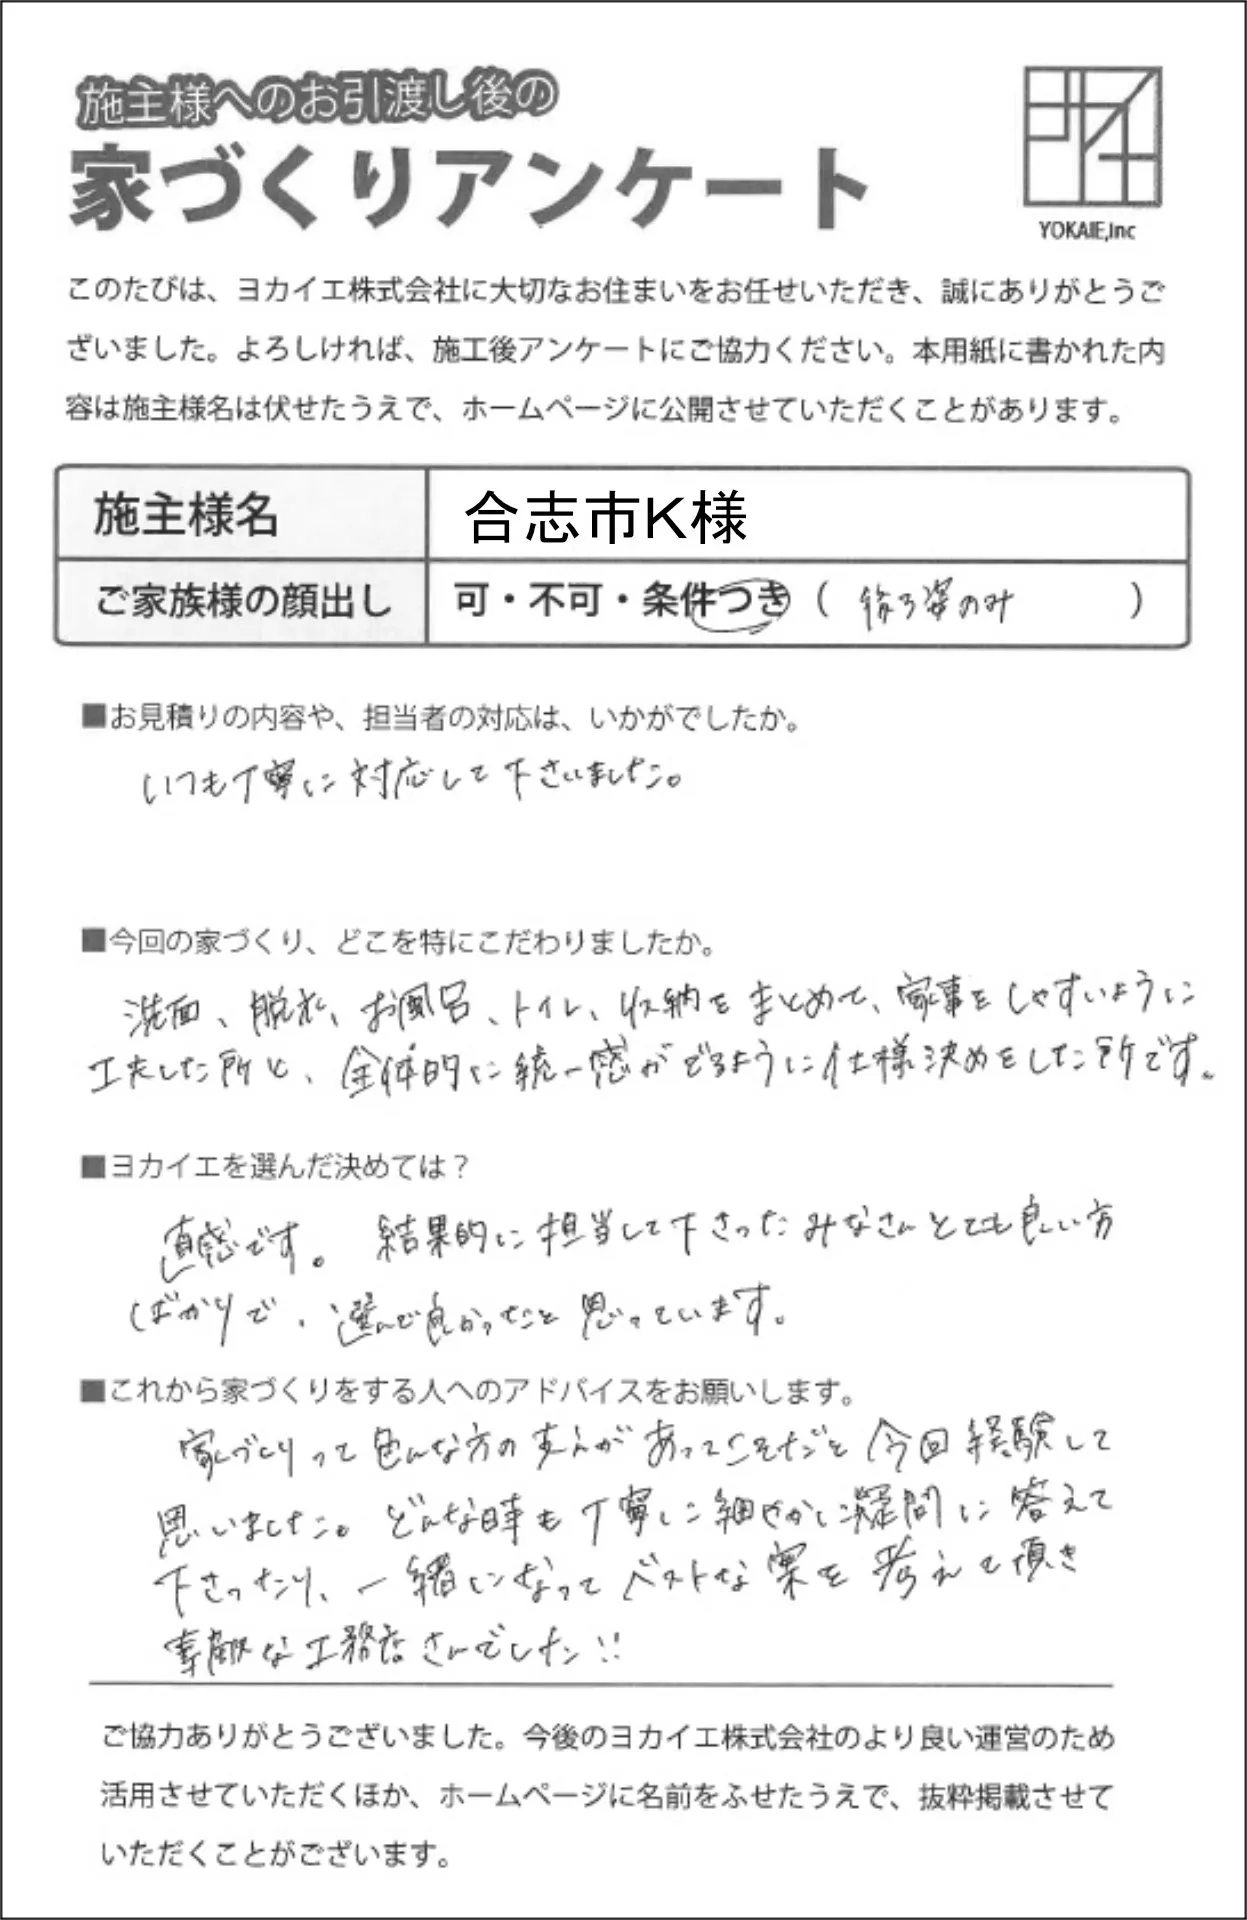 施主様へのお引渡し後の
家づくりアンケート
YOKAIE,Inc
このたびは、ヨカイエ株式会社に大切なお住まいをお任せいただき、誠にありがとうご
ざいました。よろしければ、施工後アンケートにご協力ください。本用紙に書かれた内
容は施主様名は伏せたうえで、ホームページに公開させていただくことがあります。
施主様名 合志市K様
ご家族様の顔出し 可・不可・条件つき（ 後ろ姿のみ ）
■お見積りの内容や、担当者の対応は、いかがでしたか。
いつも丁寧に対応して下さいました。
■今回の家づくり、どこを特にこだわりましたか。
洗面、脱衣、お風呂、トイレ、収納をまとめて、家事をしやすいように
工夫した所と、全体的に統一感がでるように仕様決めをした所です。
■ヨカイエを選んだ決めては？
直感です。結果的に担当して下さったみなさんとても良い方
ばかりで、選んで良かったと思っています。
■これから家づくりをする人へのアドバイスをお願いします。
家づくりって色んな方の支えがあってこそだと今回経験して
思いました。どんな時も丁寧に細やかに疑問に答えて
下さったり、一緒になってベストな案を考えて頂き
素敵な工務店さんでした!!
ご協力ありがとうございました。今後のヨカイエ株式会社のより良い運営のため
活用させていただくほか、ホームページに名前をふせたうえで、抜粋掲載させて
いただくことがございます。